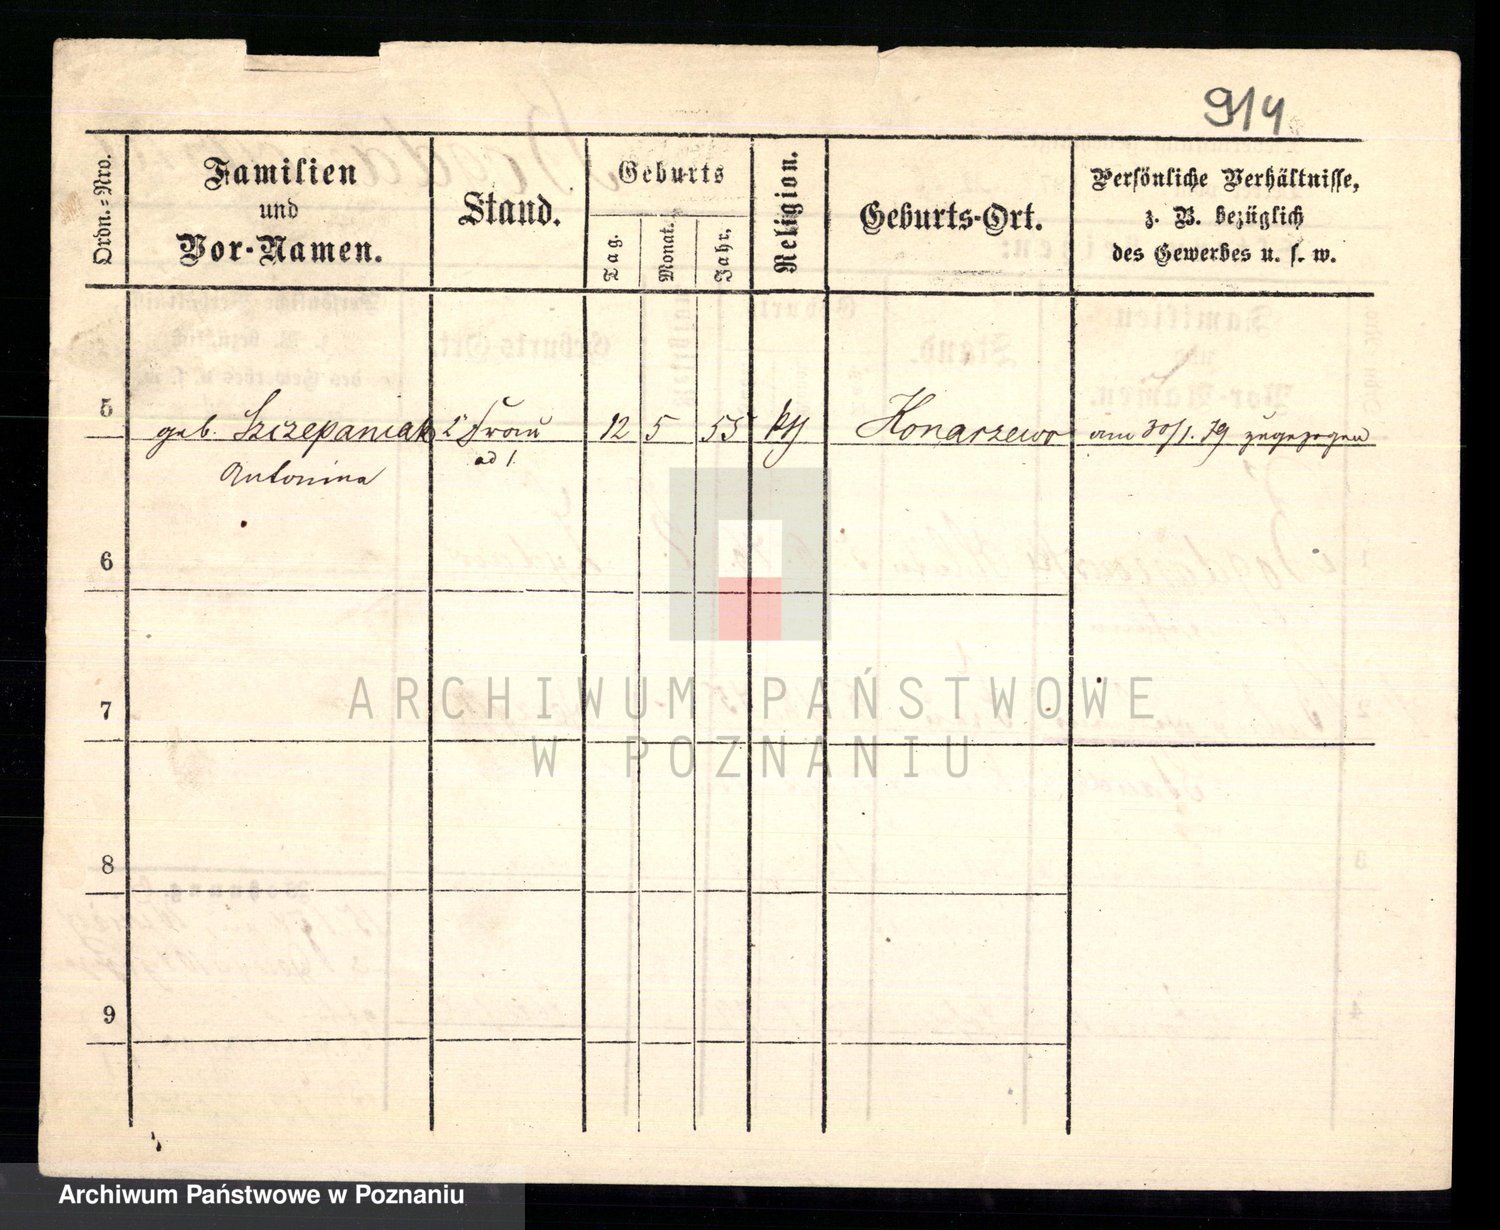 914
Ordn.-Nro.
Familien
und
Vor-Namen.
Stand.
Geburts
Tag.
Monat.
Jahr.
Religion.
Geburts-Ort.
Persönliche Verhältnisse,
z. B. bezüglich
des Gewerbes u. s. w.
5
geb. Szczepaniak
Antonina
2 Frau
ad 1.
12
5
55
kth
Konarzewo
am 30/1. 79 zugezogen
6
7
8
9
ARCHIWUM PAŃSTWOWE
W POZNANIU
Archiwum Państwowe w Poznaniu